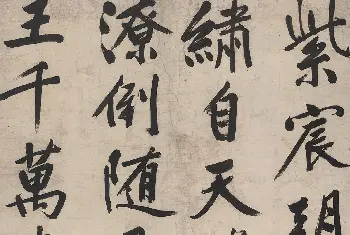 紫宸朝
繡自天
潦倒随
王千萬